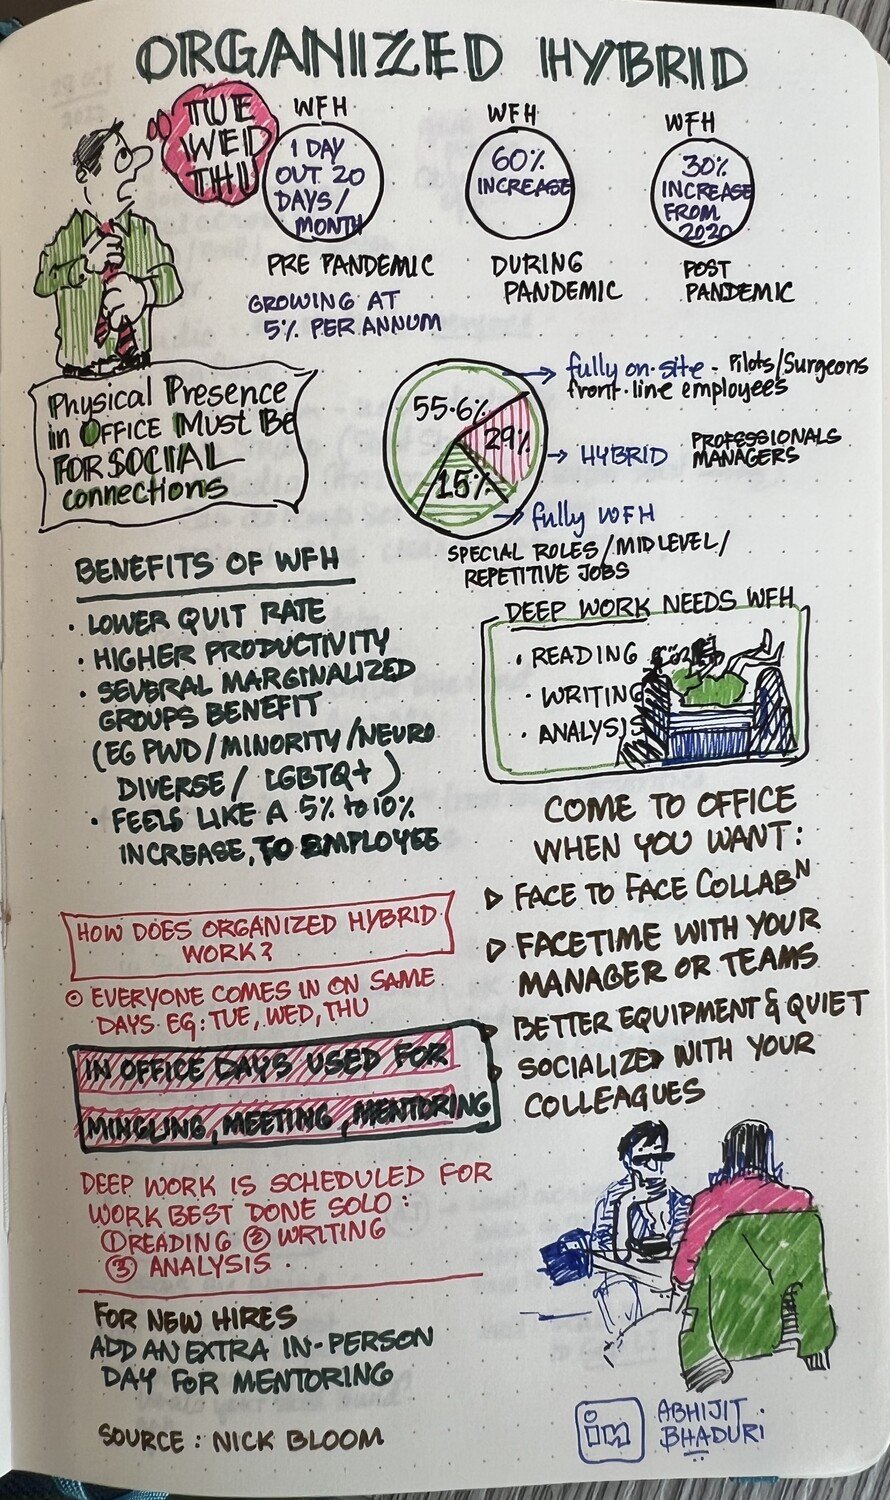 ORGANIZED HYBRID
TUE
WED
THU
WFH
1 DAY
OUT 20
DAYS/
MONTH
PRE PANDEMIC
GROWING AT
5% PER ANNUM
WFH
60%
INCREASE
DURING
PANDEMIC
WFH
30%
INCREASE
FROM
2020
POST
PANDEMIC
Physical Presence
in OFFICE MUST BE
FOR SOCIAL
connections
55.6%
29%
15%
fully on-site - Pilots/Surgeons
front-line employees
HYBRID PROFESSIONALS
MANAGERS
fully WFH
SPECIAL ROLES/MIDLEVEL/
REPETITIVE JOBS
BENEFITS OF WFH
• LOWER QUIT RATE
• HIGHER PRODUCTIVITY
• SEVERAL MARGINALIZED
GROUPS BENEFIT
(EG PWD/MINORITY/NEURO
DIVERSE/ LGBTQ+)
• FEELS LIKE A 5% to 10%
INCREASE, TO EMPLOYEE
DEEP WORK NEEDS WFH
• READING
• WRITING
• ANALYSIS
COME TO OFFICE
WHEN YOU WANT:
▷ FACE TO FACE COLLABᴺ
▷ FACETIME WITH YOUR
MANAGER OR TEAMS
▷ BETTER EQUIPMENT & QUIET
▷ SOCIALIZE WITH YOUR
COLLEAGUES
HOW DOES ORGANIZED HYBRID
WORK?
⊙ EVERYONE COMES IN ON SAME
DAYS EG: TUE, WED, THU
IN OFFICE DAYS USED FOR
MINGLING, MEETING, MENTORING
DEEP WORK IS SCHEDULED FOR
WORK BEST DONE SOLO:
① READING ② WRITING
③ ANALYSIS.
FOR NEW HIRES
ADD AN EXTRA IN-PERSON
DAY FOR MENTORING
SOURCE: NICK BLOOM
in
ABHIJIT
BHADURI